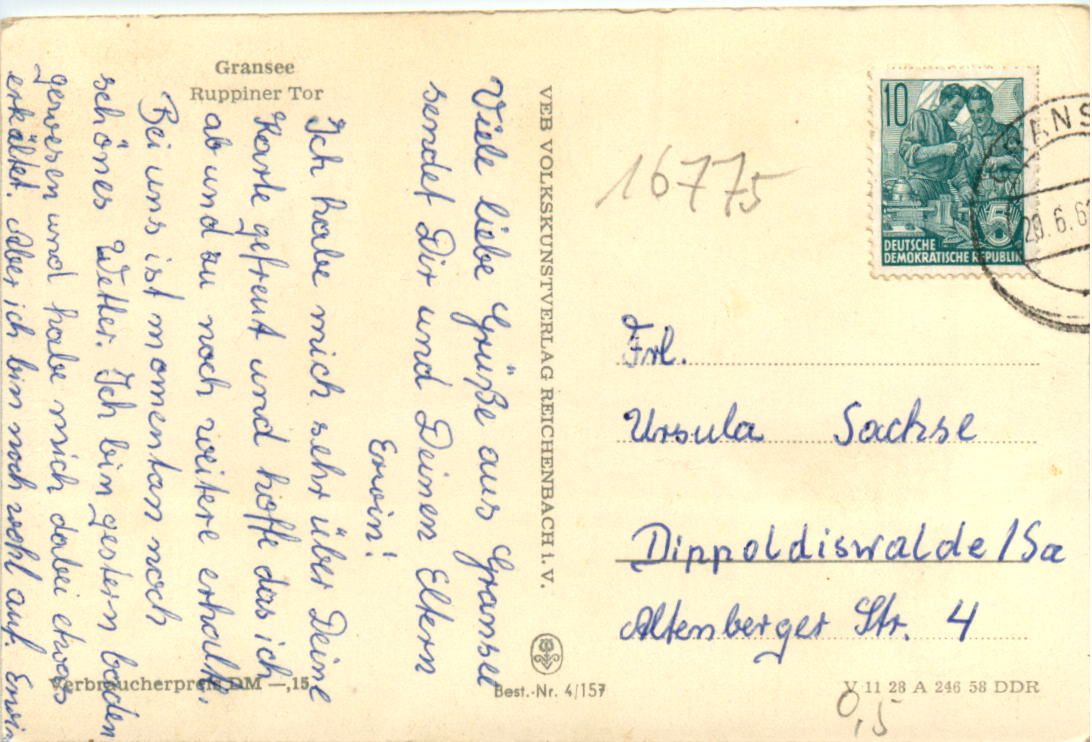 Gransee
Ruppiner Tor
Viele liebe Grüße aus Gransee
sendet Dir und Deinen Eltern
Erwin!
Ich habe mich sehr über Deine
Karte gefreut und hoffe das ich
ab und zu noch weitere erhalt.
Bei uns ist momentan noch
schönes Wetter. Ich bin gestern baden
gewesen und habe mich dabei etwas
erkältet. Aber ich bin noch wohl auf. Erwin
Verbraucherpreis DM —,15
VEB VOLKSKUNSTVERLAG REICHENBACH i. V.
Best.-Nr. 4/157
16775
10
5
DEUTSCHE
DEMOKRATISCHE REPUBLIK
GRANS
20.6.6
Frl.
Ursula Sachse
Dippoldiswalde/Sa
Altenberger Str. 4
V 11 28 A 246 58 DDR
0,5